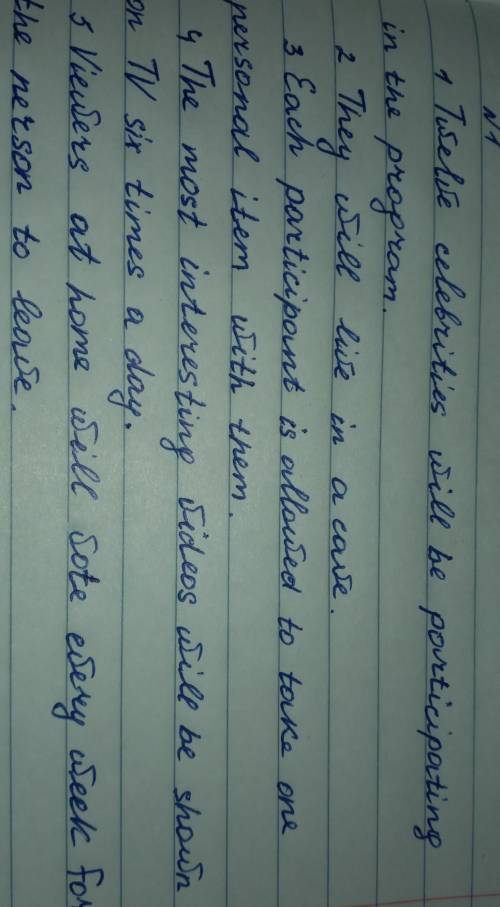 N1
1 Twelve celebrities will be participating
in the program.
2 They will live in a cave.
3 Each participant is allowed to take one
personal item with them.
4 The most interesting videos will be shown
on TV six times a day.
5 Viewers at home will vote every week for
the person to leave.